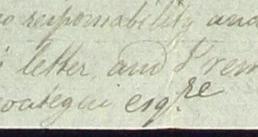 responsability and
letter, and I rem
oategui esqre